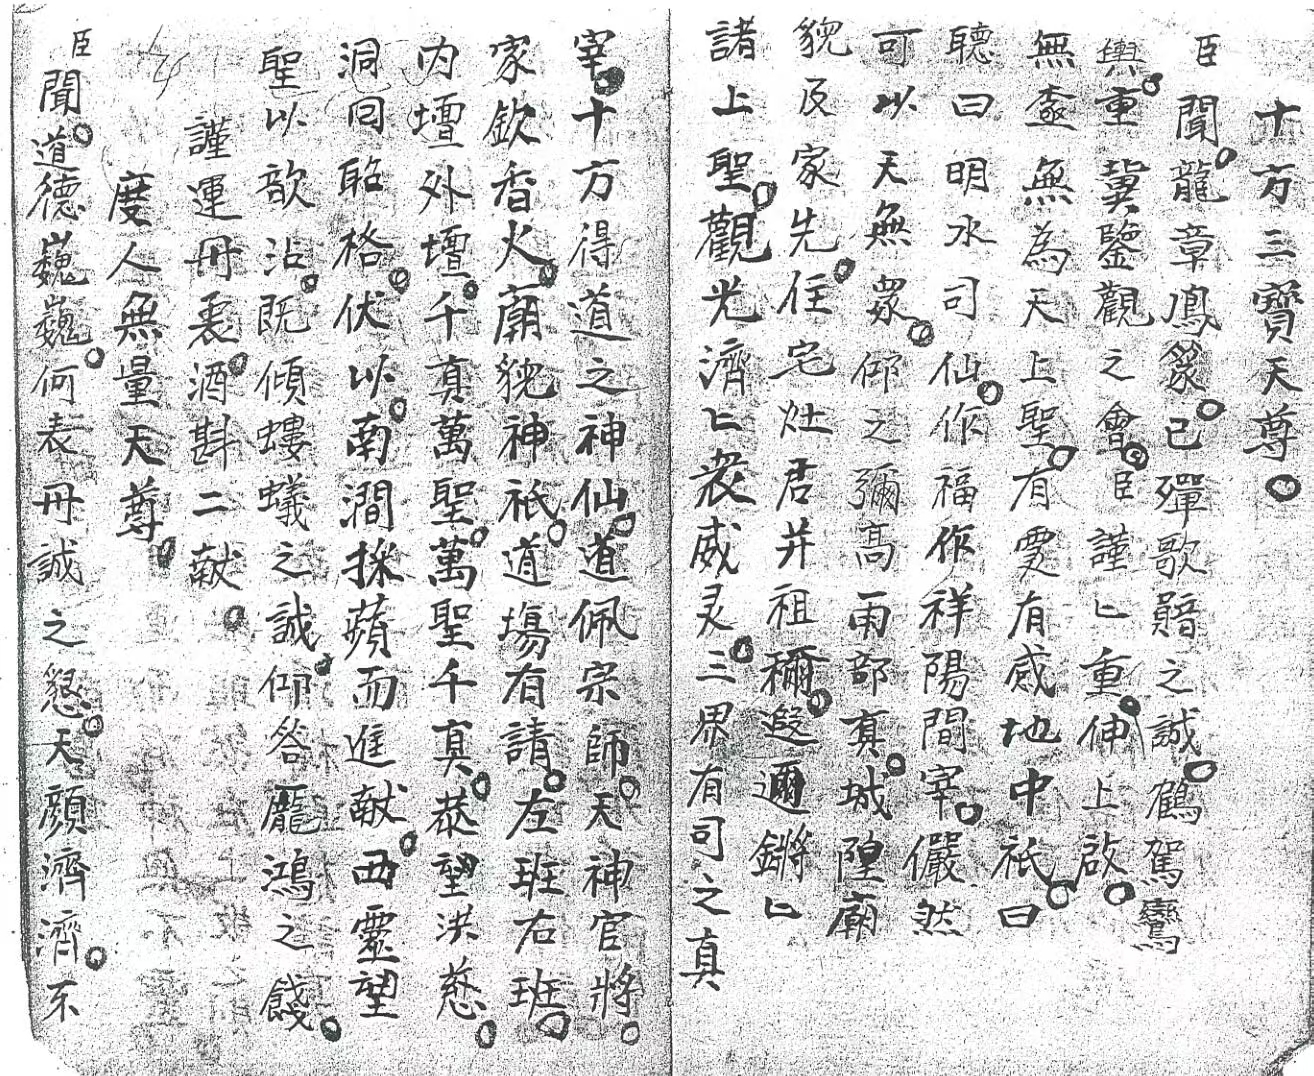 十方三寶天尊。
臣聞。龍章鳳篆。已殫歌之誠。鶴駕鸞
輿。重冀鑒觀之會。臣謹匕重。伸上啟。
無臺無為天上聖。有灵有感地中祇。曰
聽曰明水司仙。作福作祥陽間宰。儼然
可以天無眾。仰之彌高兩部真。城隍廟
貌及家先。住宅灶君并祖禰。遐邇鏘匕
諸上聖。觀光濟匕衆威灵。三界有司之真
宰。十方得道之神仙。道佩宗師。天神官將。
家欽香火。廟貌神祇。道塲有請。左班右班。
内壇外壇。千真萬聖。萬聖千真。恭望洪慈。
洞回昭格。伏以。南澗採蘋而進献。西靈望
聖以歆沾。既傾螻蟻之誠。仰答龐鴻之餞。
謹運丹衷。酒斟二献。
度人無量天尊。
臣聞。道德巍巍。何表丹誠之懇。天顔濟濟。不